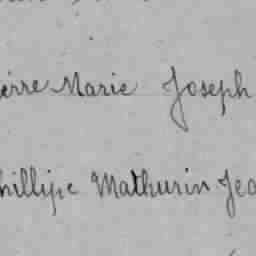 ierre Marie Joseph
hillipe Mathurin Jea